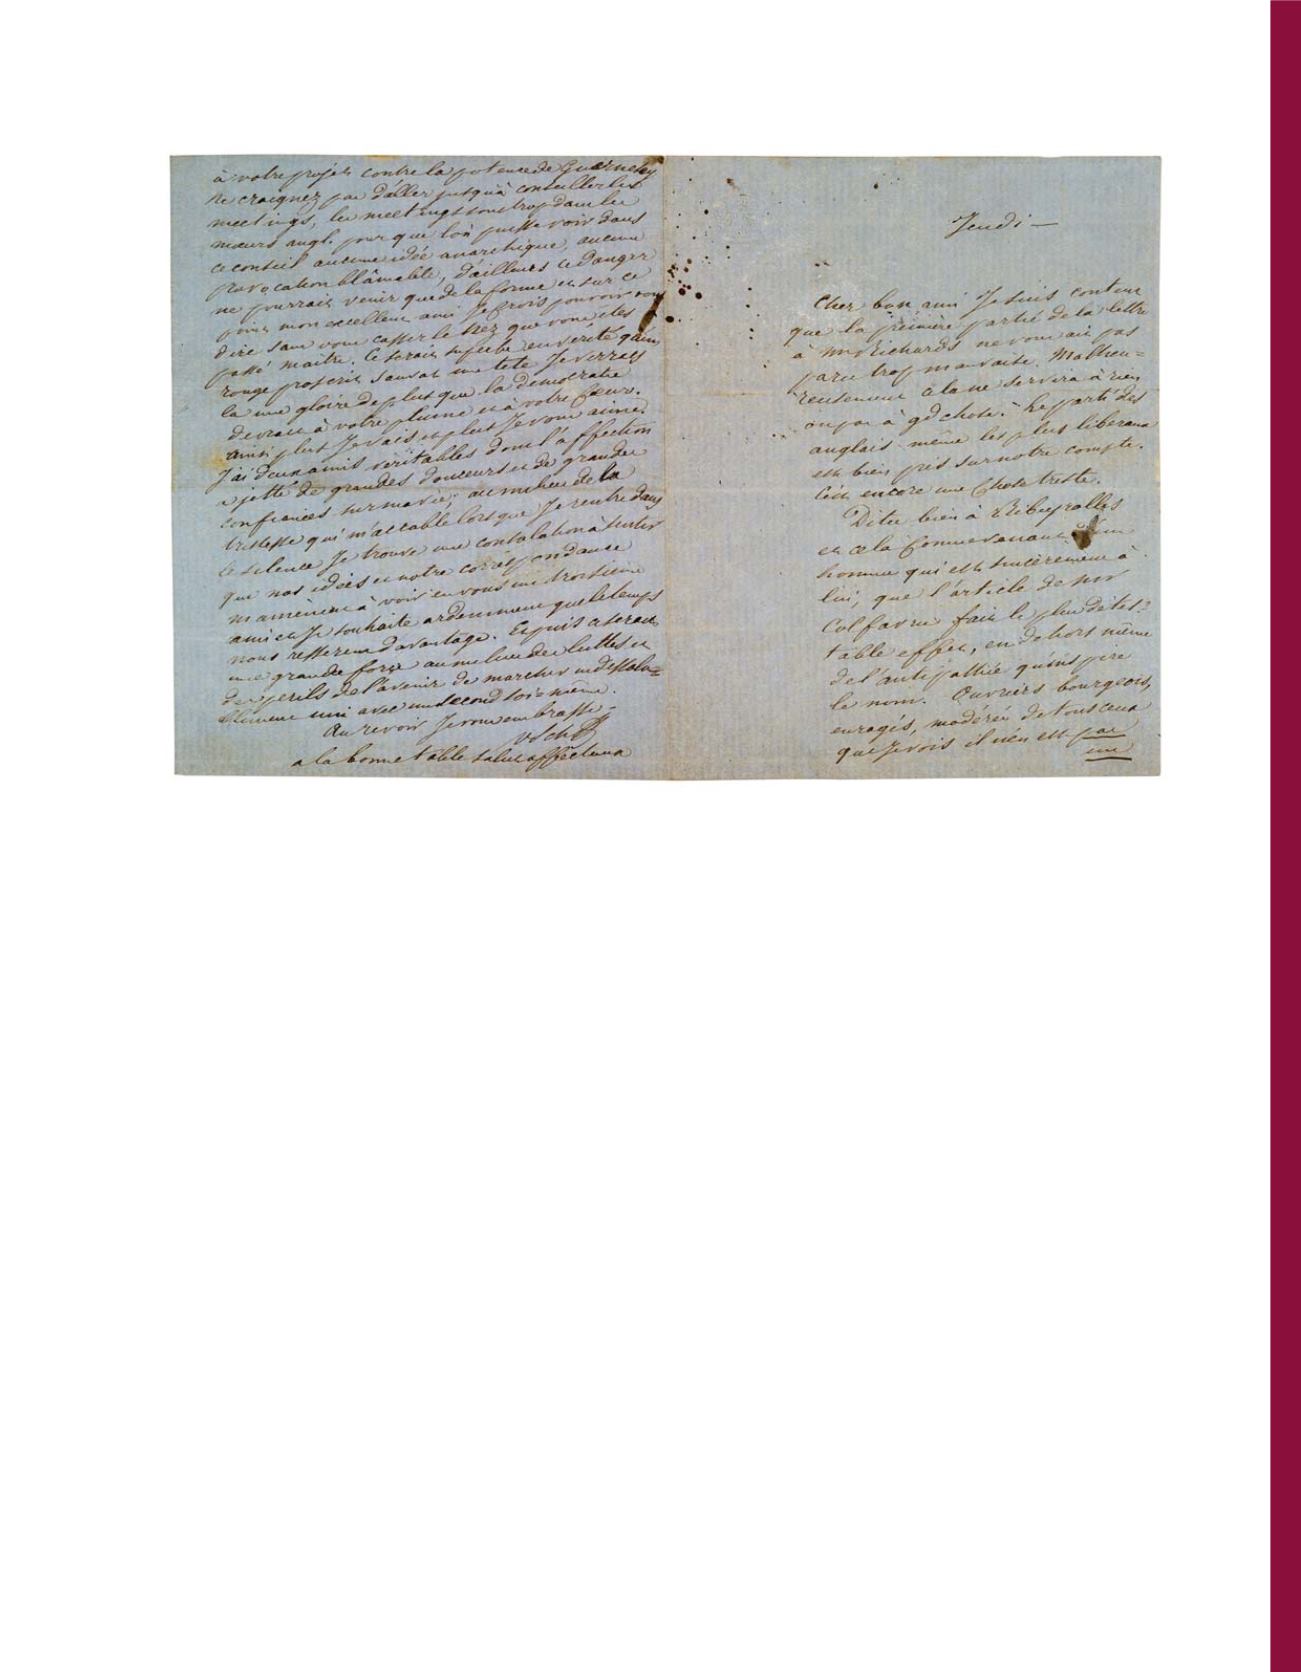 à votre projet contre la potence de Guernesey
ne craignez pas d'aller jusqu'à conseiller les
meetings, les meetings sont trop dans les
mœurs angl. pour que l'on puisse voir dans
ce conseil aucune idée anarchique, aucune
provocation blâmable, d'ailleurs ce danger
ne pourrait venir que de la forme et sur ce
point mon excellent ami Je crois pouvoir vous
dire sans vous casser le nez que vous etes
passé maitre. Ce serait superbe en verité qu'un
rouge proscrit sauvat une tete Je verrais
la une gloire de plus que la democratie
devrait à votre plume et à votre cœur.
ainsi plus Je vais et plus Je vous aime.
J'ai deux amis véritables dont l'affection
a jetté de grandes douceurs et de grandes
confiances sur ma vie; au milieu de la
tristesse qui m'accable lorsque Je rentre dans
le silence Je trouve une consolation à sentir
que nos idées et notre correspondance
m'amènent à voir en vous un troisieme
ami et Je souhaite ardemment que le temps
nous resserre davantage. Et puis ce serait
une grande force au milieu des luttes et
des perils de l'avenir de marcher indissolu=
blement uni avec un second soi même.
Au revoir Je vous embrasse.
V Sch
a la bonne table salut affectueux
Jeudi —
Cher bon ami Je suis content
que la première partie de la lettre
à Mr Richards ne vous ait pas
paru trop mauvaise. Malheu=
reusement cela ne servira à rien
ou pas à gd chose. Le parti des
anglais même les plus liberaux
est bien pris sur notre compte.
C'est encore une chose triste.
Dites bien à Ribeyrolles
et cela comme venant
homme qui est sincèrement à
lui, que l'article de
Colfavru fait le plus détes=
table effet, en dehors même
de l'antipathie qu'inspire
le nom. Ouvriers bourgeois,
enragés, modérés de tous ceux
que Je vois il n'en est pas
un